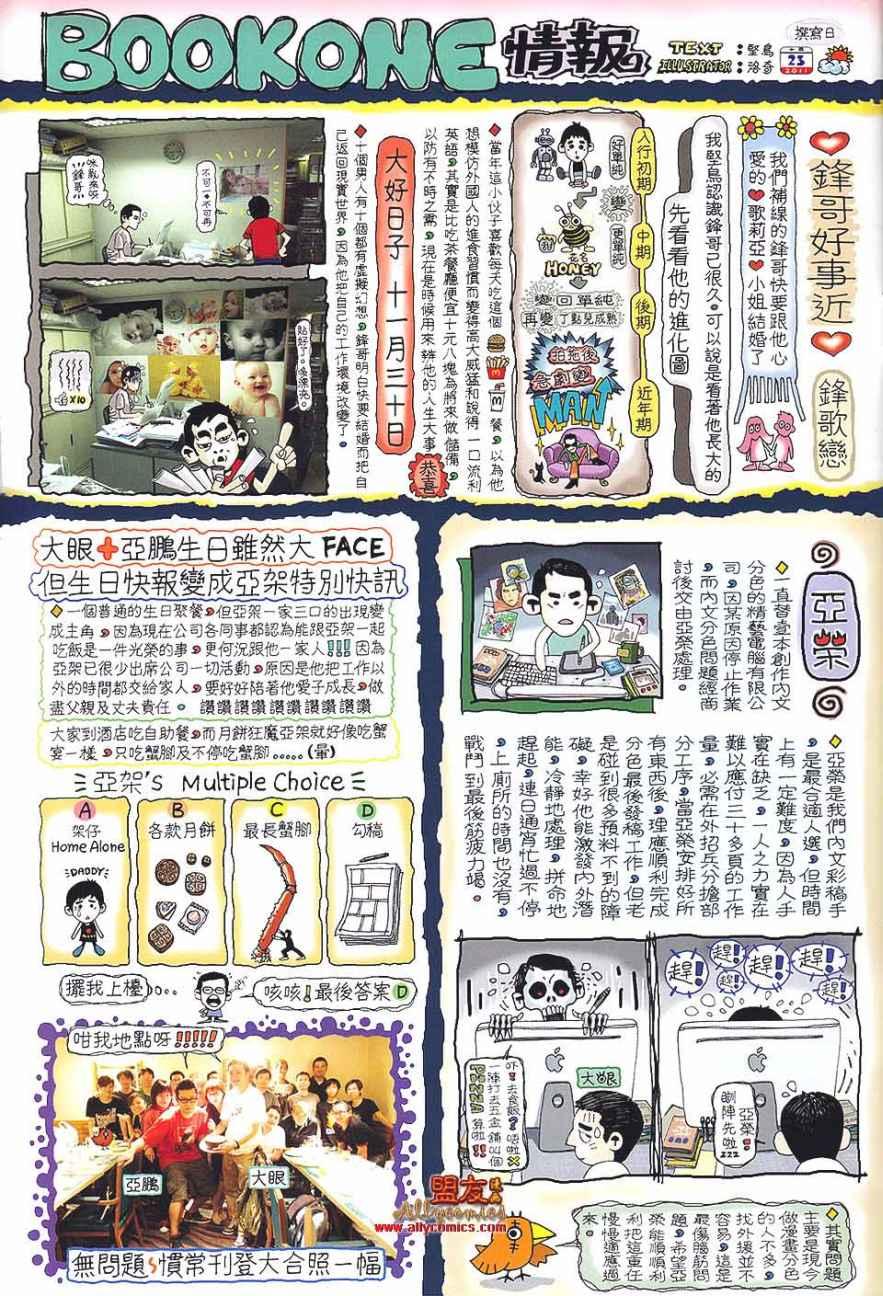 BOOKONE 情報
TEXT :堅鳥
ILLUSTRATOR :洛奇
撰寫日
十月
23
2011
鋒哥好事近
鋒歌戀
我們補線的鋒哥快要跟他心
愛的歌莉亞小姐結婚了
我堅鳥認識鋒哥已很久。可以說是看著他長大的
先看看他的進化圖
入行初期
好單純
變
中期
更單純
花名
HONEY
後期
變回單純
再變了點兒成熟
近年期
拍拖後
急劇變
MAN
當年這小伙子喜歡每天吃這個餐,以為他
想模仿外國人的進食習慣而變得高大威猛和說得一口流利
英語,其實是比吃茶餐廳便宜十元八塊為將來做儲備,
以防有不時之需,現在是時候用來辦他的人生大事
恭喜
大好日子 十一月三十日
十個男人有十個都有虛擬幻想,鋒哥明白快要結婚而把自
己返回現實世界,因為他把自己的工作環境改變了。
咪亂來呀
鋒哥!
不可一,不可再
貼好了。
X10
大眼+亞鵬生日雖然大FACE
但生日快報變成亞架特別快訊
一個普通的生日聚餐,但亞架一家三口的出現變
成主角,因為現在公司各同事都認為能跟亞架一起
吃飯是一件光榮的事,更何況跟他一家人!!!因為
亞架已很少出席公司一切活動,原因是他把工作以
外的時間都交給家人,要好好陪著他愛子成長,做
盡父親及丈夫責任。讚讚讚讚讚讚讚讚
大家到酒店吃自助餐,而月餅狂魔亞架就好像吃蟹
宴一樣,只吃蟹腳及不停吃蟹腳.....(暈)
亞架'S Multiple Choice
A
架仔
Home Alone
DADDY
B
各款月餅
C
最長蟹腳
D
勾稿
擺我上檯
咳咳!最後答案D
咁我地點呀!!!!!
亞鵬
大眼
無問題,慣常刊登大合照一幅
亞榮
一直替壹本創作內文
分色的精藝電腦有限公
司,因某原因停止作業
,而內文分色問題經商
討後交由亞榮處理。
亞榮是我們內文彩稿手
,是最合適人選,但時間
上有一定難度,因為人手
實在缺乏,一人之力實在
難以應付三十多頁的工作
量,必需在外招兵分擔部
分工序,當亞榮安排好所
有東西後,理應順利完成
分色最後發稿工作,但老
是碰到很多預料不到的障
礙,幸好他能激發內外潛
能,冷靜地處理,拼命地
趕起,連日通宵忙過不停
,上廁所的時間也沒有,
戰鬥到最後筋疲力竭。
趕!!
趕!!
趕!!
趕!!
趕!!
亞榮!!
瞓陣先啦
zzz
吓!去食飯?唔啦
一陣打去五金舖叫個
PIZZA
算啦!!
大眼
其實問題
主要是現今
做漫畫分色
的人不多,
找外援並不
容易,這是
最傷腦筋問
題,希望亞
榮能順順利
利把這重任
慢慢適應過
來。
盟友
Allycomics
www.allycomics.com